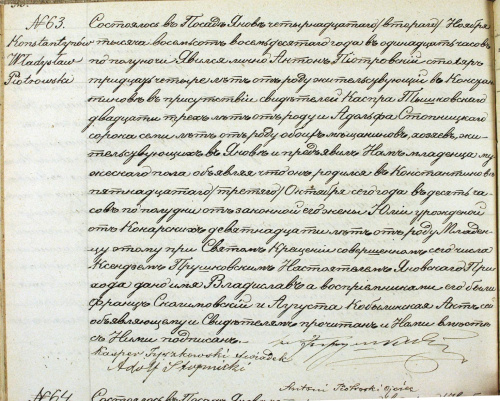 № 63.
Konstantynów
Władysław
Piotrowski
Состоялось въ Посадѣ Яновѣ четырнадцатаго /втораго/ Ноября
тысяча восемьсотъ восемьдесятаго года въ одинадцать часовъ
по полуночи. Явился лично Антонъ Піотровскій столяръ
тридцать четыре лѣтъ отъ роду жительствующій въ Констан
тиновѣ въ присутствіи свидѣтелей Каспра Тышковскаго
двадцати трехъ лѣтъ отъ роду и Адольфа Стопницкаго
сорока семи лѣтъ отъ роду обоихъ мѣщановъ, хозяевъ, жи-
тельсвующихъ въ Яновѣ и предъявилъ Намъ младенца му
жескаго пола объявляя что онъ родился въ Константиновѣ
пятнадцатаго /третяго/ Октября сего года въ десять ча-
совъ по полудни отъ законной его жены Юліи урожденой
отъ девятнадцати лѣтъ отъ роду Младен-
цу этому при Святомъ Крещеніи совершенномъ сего числа
Ксендзомъ Прушковскимъ Настоятелемъ Яновскаго При
хода дано имя Владиславъ а воспріемниками его были
Францъ и Августа Актъ сей
объявляющему и Свидѣтелямъ прочитанъ и Нами вмѣстѣ
съ Ними подписанъ.
Kasper Tyszkowski świadek
Adolf Stopnicki
Antoni Piotroski ojciec
№ 64
Состоялось въ Посадѣ Яновѣ